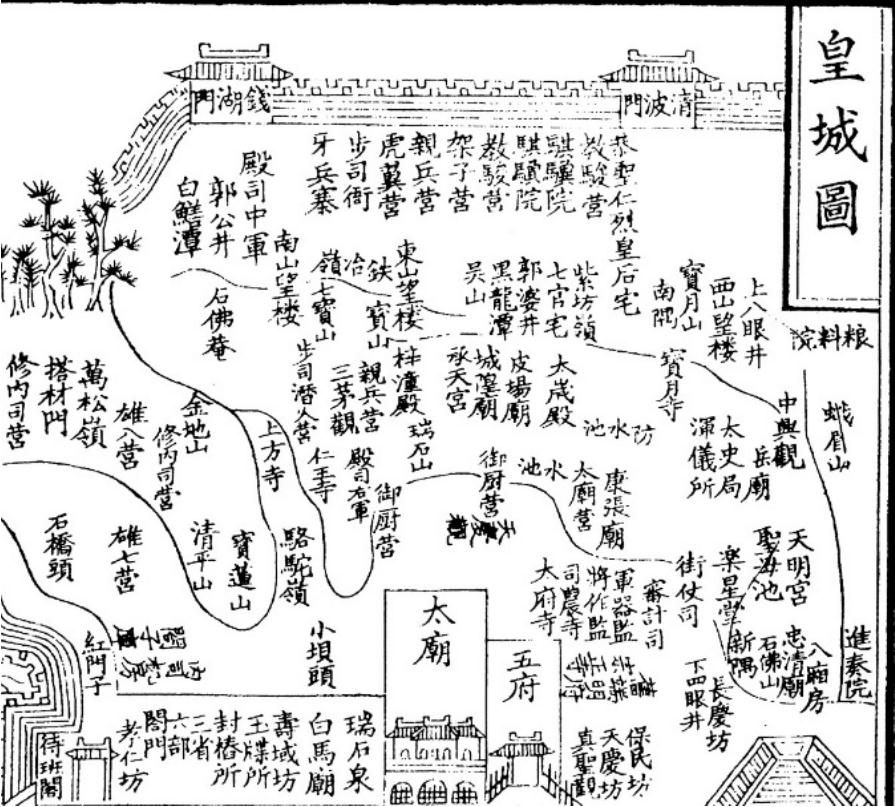 皇城圖
清波門
錢湖門
恭聖仁烈皇后宅
教駿營
騏驥院
騏驥院
教駿營
架子營
親兵營
虎翼營
步司衙
牙兵寨
殿司中軍
郭公井
白鱔潭
上八眼井
西山望楼
寶月山
南隅
紫坊嶺
七官宅
郭婆井
黑龍潭
吳山
東山望楼
鉄冶嶺
七寶山
寶山
南山望楼
石佛菴
粮料院
寶月寺
太歲殿
皮場廟
城隍廟
承天宮
梓潼殿
親兵營
三茅觀
步司潛火營
蛾眉山
中興觀
岳廟
太史局
渾儀所
防水池
瑞石山
仁王寺
上方寺
金地山
修內司營
雄六營
萬松嶺
搭材門
修內司營
康張廟
太廟營
水池
御厨營
殿司右軍
御厨營
天慶觀
天明宮
聖海池
楽星堂
街仗司
審計司
軍器監
將作監
司農寺
太府寺
駱駝嶺
寶蓮山
清平山
雄七營
石橋頭
進奏院
八廂房
忠清廟
石佛山
新隅
長慶坊
下四眼井
太廟
五府
小墳頭
紅門子
保民坊
天慶坊
真聖觀
瑞石泉
白馬廟
壽域坊
玉牒所
封樁所
三省
六部
閤門
孝仁坊
待班閣